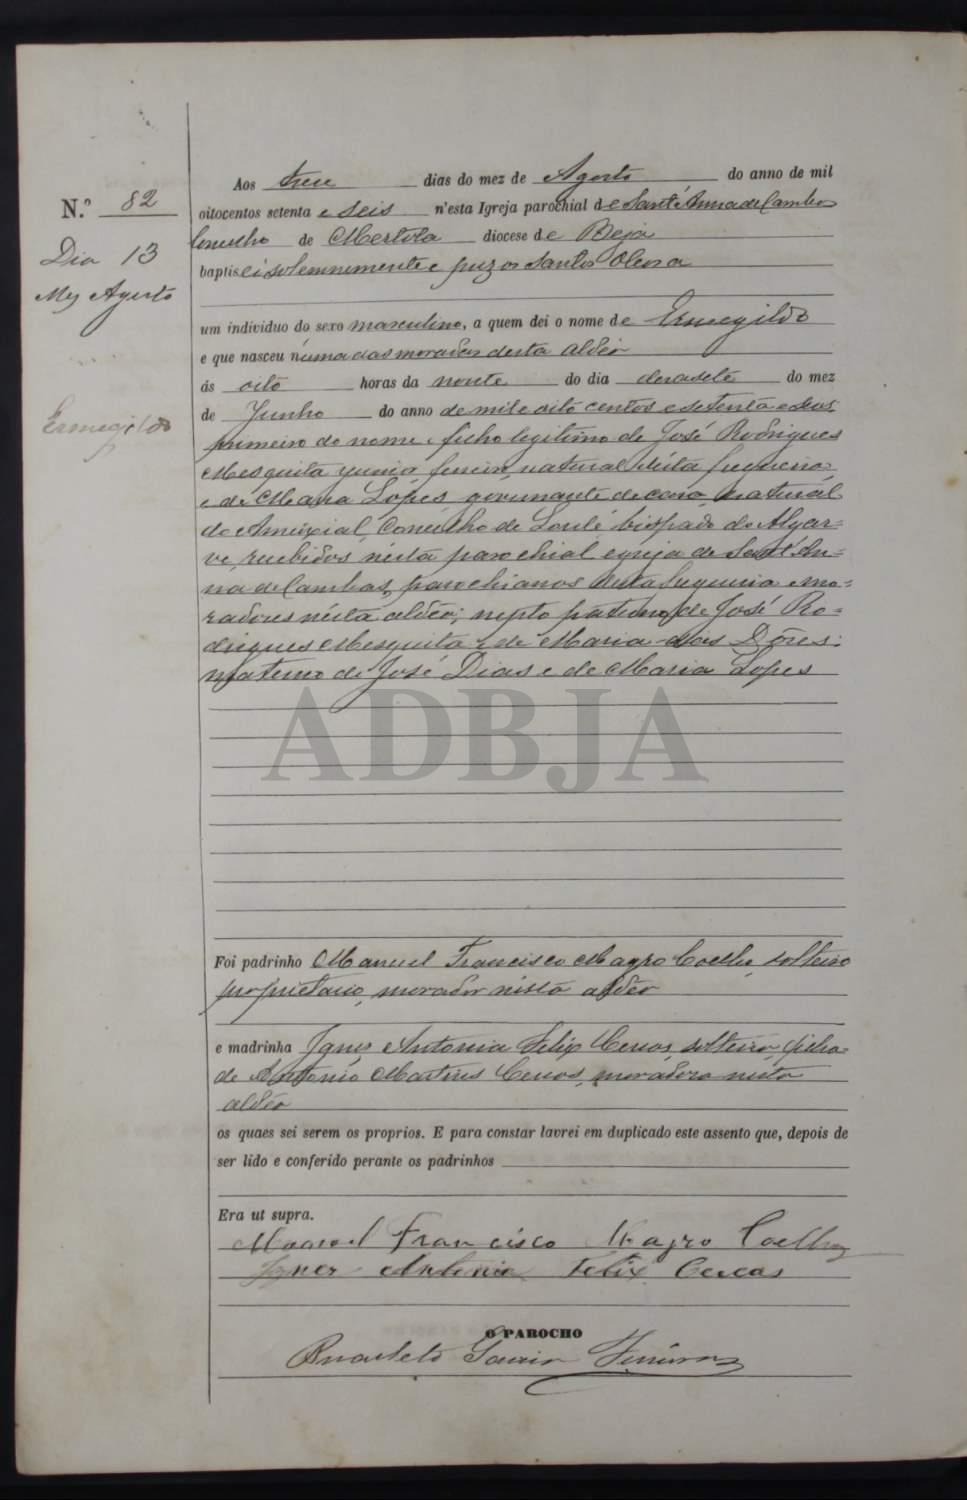 N.º 82
Dia 13
Mez Agosto
Ermegildo
Aos treze dias do mez de Agosto do anno de mil
oitocentos setenta e seis n'esta Igreja parochial de Sant'Anna de Cambas
Concelho de Mertola diocese de Beja
baptisei solemnemente e puz os Santos Oleos a
um individuo do sexo masculino, a quem dei o nome de Ermegildo
e que nasceu n'uma das moradas desta aldêa
ás oito horas da noute do dia dezasete do mez
de Junho do anno de mil e oito centos e setenta e seis
primeiro do nome, filho legitimo de José Rodrigues
Mesquita natural désta freguezia
e de Maria Lopes governante de casa natural
do Ameixial, Concelho de Loulé bispado do Algar=
ve, recebidos nésta parochial egreja de Sant'An=
na de Cambas, parochianos desta freguezia e mo=
radores nésta aldêa; nepto paterno de José Ro=
drigues Mesquita e de Maria das Dôres:
materno de José Dias e de Maria Lopes
ADBJA
Foi padrinho Manuel Francisco Magro Coelho, solteiro
proprietario, morador nésta aldêa
e madrinha Ignes Antonia Felix Cercas, solteira, filha
de Antonio Martins Cercas, moradora nésta
aldêa
os quaes sei serem os proprios. E para constar lavrei em duplicado este assento que, depois de
ser lido e conferido perante os padrinhos
Era ut supra.
Manoel Francisco Magro Coelho
Ignes Antonia Felix Cercas
O PAROCHO